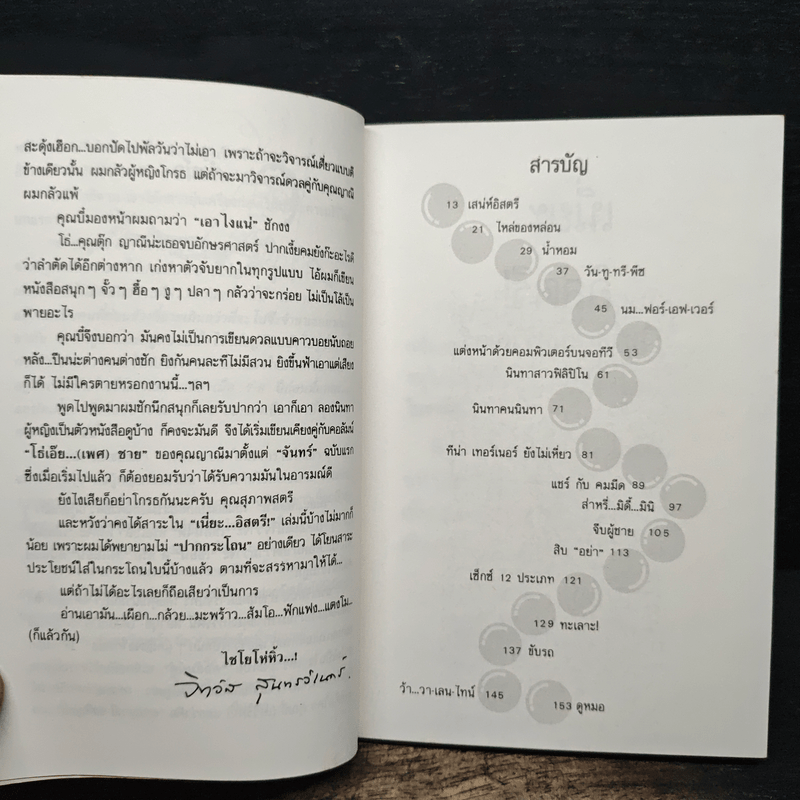 สะดุ้งเฮือก...บอกปัดไปพัลวันว่าไม่เอา เพราะถ้าจะวิจารณ์เดี่ยวแบบตี
ข้างเดียวนั้น ผมกลัวผู้หญิงโกรธ แต่ถ้าจะมาวิจารณ์ดวลคู่กับคุณญาณี
ผมกลัวแพ้
คุณบี๋มองหน้าผมถามว่า "เอาไงแน่" ชักงง
โธ่...คุณตุ๊ก ญาณีน่ะเธอจบอักษรศาสตร์ ปากเงี้ยคมยังก๊ะอะไรดี
ว่าลำตัดได้อีกต่างหาก เก่งหาตัวจับยากในทุกรูปแบบ ไอ้ผมก็เขียน
หนังสือสนุกๆ จั๊วๆ ฮื้อๆ งูๆ ปลาๆ กลัวว่าจะกร่อย ไม่เป็นโล้เป็น
พายอะไร
คุณบี๋จึงบอกว่า มันคงไม่เป็นการเขียนดวลแบบคาวบอยนับถอย
หลัง...ปืนน่ะต่างคนต่างชัก ยิงกันคนละทีไม่มีสวน ยิงขึ้นฟ้าเอาแต่เสียง
ก็ได้ ไม่มีใครตายหรอกงานนี้...ๆลๆ
พูดไปพูดมาผมชักนึกสนุกก็เลยรับปากว่า เอาก็เอา ลองนินทา
ผู้หญิงเป็นตัวหนังสือดูบ้าง ก็คงจะมันดี จึงได้เริ่มเขียนเคียงคู่กับคอลัมน์
"โธ่เอ๊ย...(เพศ) ชาย" ของคุณญาณีมาตั้งแต่ "จันทร์" ฉบับแรก
ซึ่งเมื่อเริ่มไปแล้ว ก็ต้องยอมรับว่าได้รับความมันในอารมณ์ดี
ยังไงเสียก็อย่าโกรธกันนะครับ คุณสุภาพสตรี
และหวังว่าคงได้สาระใน "เนี่ยะ...อิสตรี!" เล่มนี้บ้างไม่มากก็
น้อย เพราะผมได้พยายามไม่ "ปากกระโถน" อย่างเดียว ได้โยนสาระ
ประโยชน์ใส่ในกระโถนใบนี้บ้างแล้ว ตามที่จะสรรหามาให้ได้...
แต่ถ้าไม่ได้อะไรเลยก็ถือเสียว่าเป็นการ
อ่านเอามัน...เผือก...กล้วย...มะพร้าว...ส้มโอ...ฟักแฟง...แตงโม...
(ก็แล้วกัน)
ไชโยโห่หิ้ว...!
สารบัญ
13 เสน่ห์อิสตรี
21 ไหล่ของหล่อน
29 น้ำหอม
37 วัน-ทู-ทรี-พีซ
45 นม...ฟอร์-เอฟ-เวอร์
แต่งหน้าด้วยคอมพิวเตอร์บนจอทีวี 53
นินทาสาวฟิลิปิโน 61
นินทาคนนินทา 71
ทีน่า เทอร์เนอร์ ยังไม่เหี่ยว 81
แชร์ กับ คมมีด 89
ส่าหรี่...มิดี้...มินิ 97
จีบผู้ชาย 105
สิบ "อย่า" 113
เซ็กซ์ 12 ประเภท 121
129 ทะเลาะ!
137 ขับรถ
ว้า...วา-เลน-ไทน์ 145
153 ดูหมอ